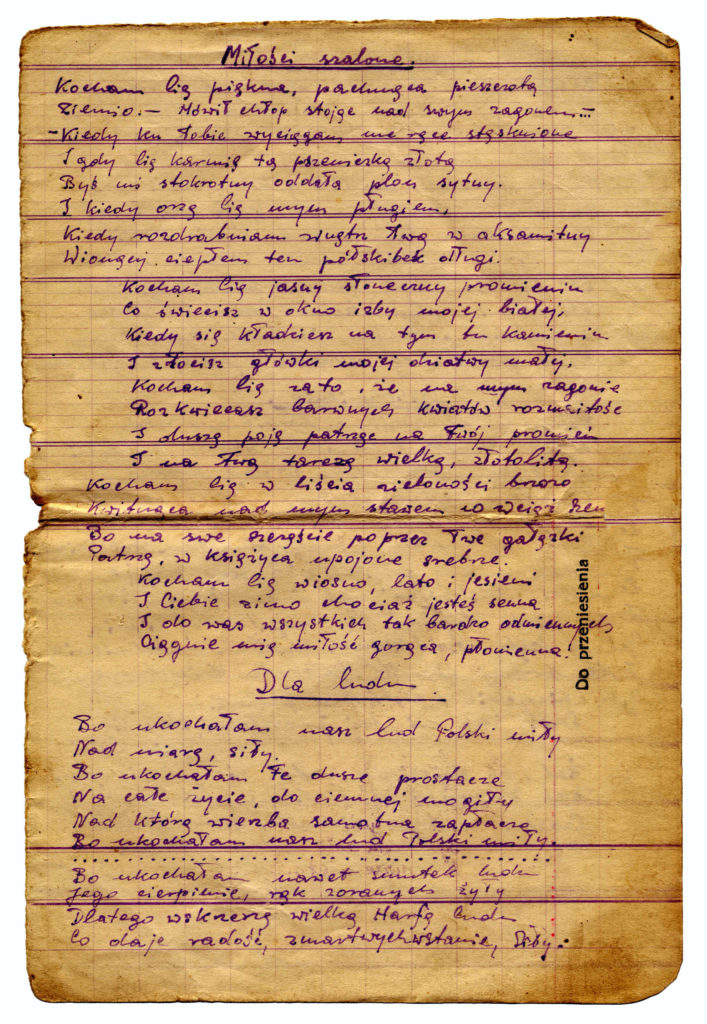 Miłości szalone.
Kocham Cię piękna, pachnąca pieszczotą
Ziemio. – Mówił chłop stojąc nad swym zagonem...
– Kiedy ku Tobie wyciągam me ręce stęsknione
I gdy Cię karmię tą pszeniczką złotą
Byś mi stokrotny oddała plon sytny.
I kiedy orzę Cię mym pługiem,
Kiedy rozdrabniam wnątrz Twą w aksamitny
Wioncej ciepłem ten półskibek długi.
Kocham Cię jasny słoneczny promieniu
Co świecisz w okno izby mojej białej,
Kiedy się kładziesz na tym tu kamieniu
I złocisz główki mojej dziatwy mały,
Kocham Cię za to, że na mym zagonie
Rozkwiecasz barwnych kwiatów rozmaitość
I duszę poją patrząc na Twój promień
I na Twą tarczę wielką, złotolitą.
Kocham Cię w liścia zieloności brzozo
Kwitnąca nad mym stawem co wciąż
Bo na swe szczęście poprzez Twe gałązki
Patrzę, w księżyca upojone srebrze.
Kocham Cię wiosno, lato i jesieni
I Ciebie zimo chociaż jesteś senna
I do was wszystkich tak bardzo odmiennych
Ciągnie mię miłość gorąca, płomienna!
Do przeniesienia
Dla ludu.
Bo ukochałam nasz lud Polski miły
Nad miarę, siły.
Bo ukochałam te dusze prostacze
Na całe życie, do ciemnej mogiły
Nad którą wierzba samotna zapłacze
Bo ukochałam nasz lud Polski miły.
Bo ukochałam nawet smutek ludu
Jego cierpienie, rąk zoranych żyły
Dlatego wskrzeszę wielką Harfę Cudu
Co daje radość, zmartwychwstanie, Siły.